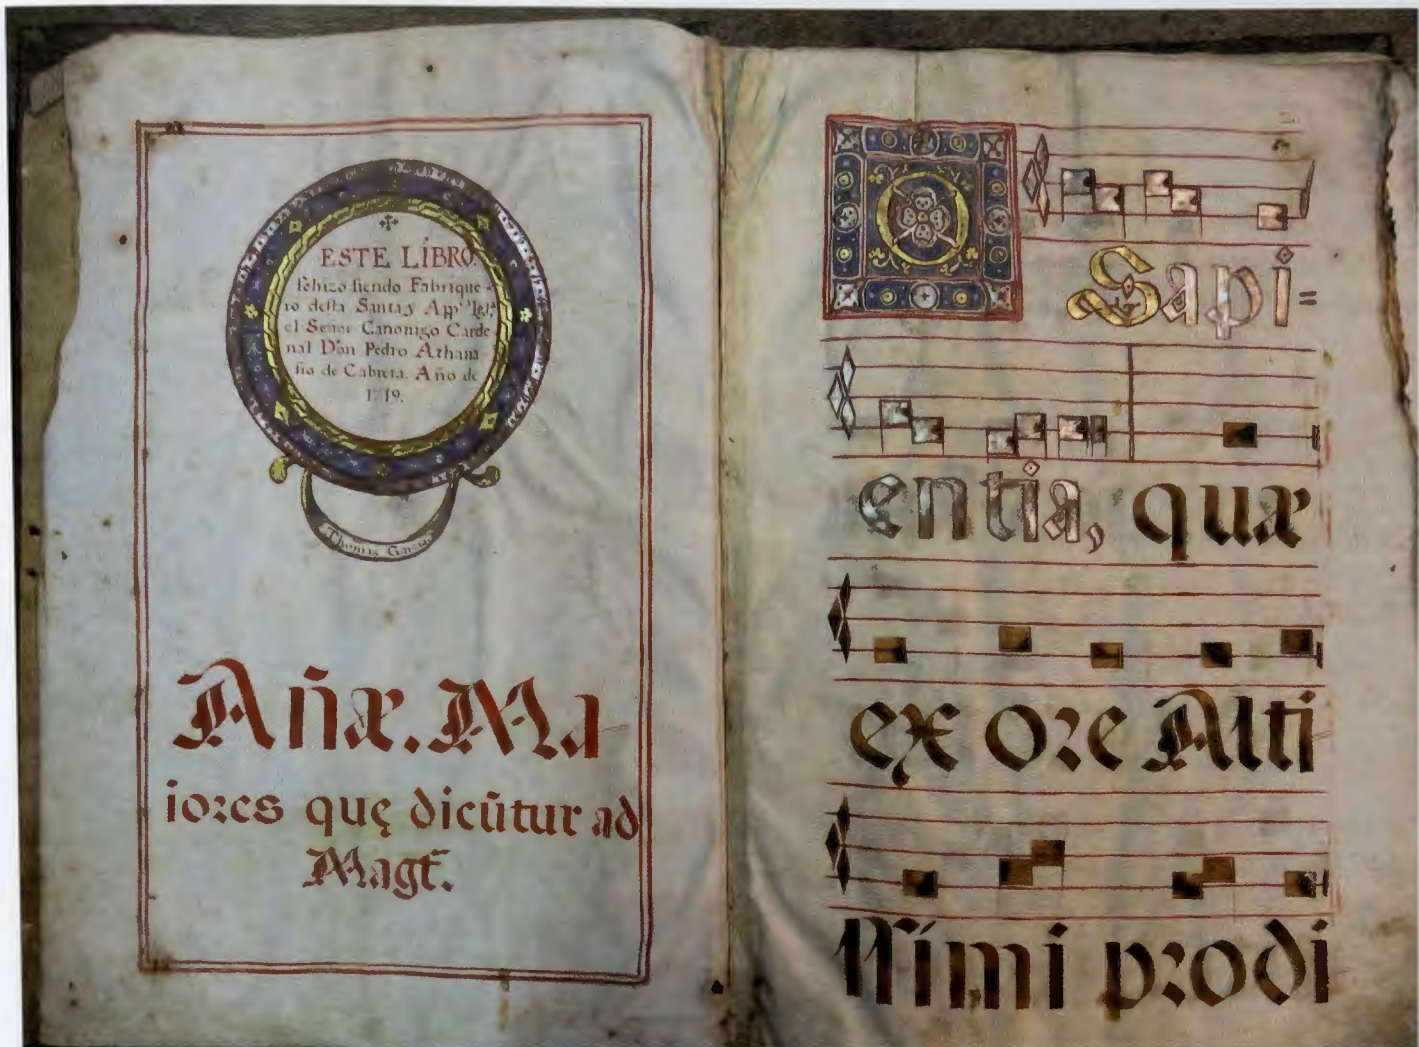 ESTE LIBRO.
se hizo siendo Fabrique-
ro desta Santa y App.ca Igl.a
el Señor Canonigo Carde
nal Don Pedro Athana
sio de Cabrera. Año de
1719.
Thomas Garcia
Añæ. Ma
iores quę dicūtur ad
Magt̄.
O Sapi=
entia, quæ
ex ore Alti
ssimi prodi